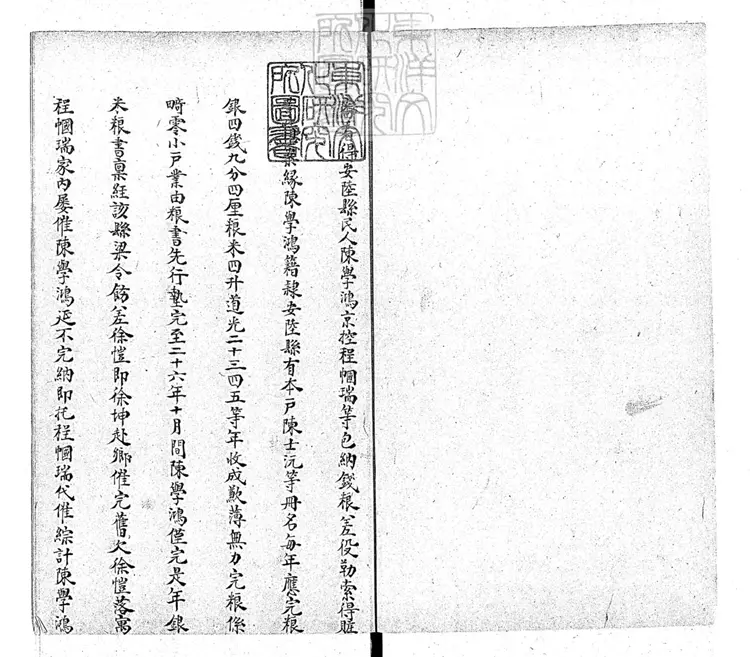 看得安陸縣民人陳學鴻京控程幗瑞等包納錢粮差役勒索得賍
案緣陳學鴻籍隸安陸縣有本戶陳士沅等冊名每年應完粮
銀四錢九分四厘粮米四升道光二十三四五等年收成歉薄無力完粮係
畸零小戶業由粮書先行墊完至二十六年十月間陳學鴻僅完是年銀
米粮書稟經該縣梁令飭差徐愷即徐坤赴鄉催完舊欠徐愷落寓
程幗瑞家內屡催陳學鴻延不完納即托程幗瑞代催綜計陳學鴻
東洋文
化研究
所圖書